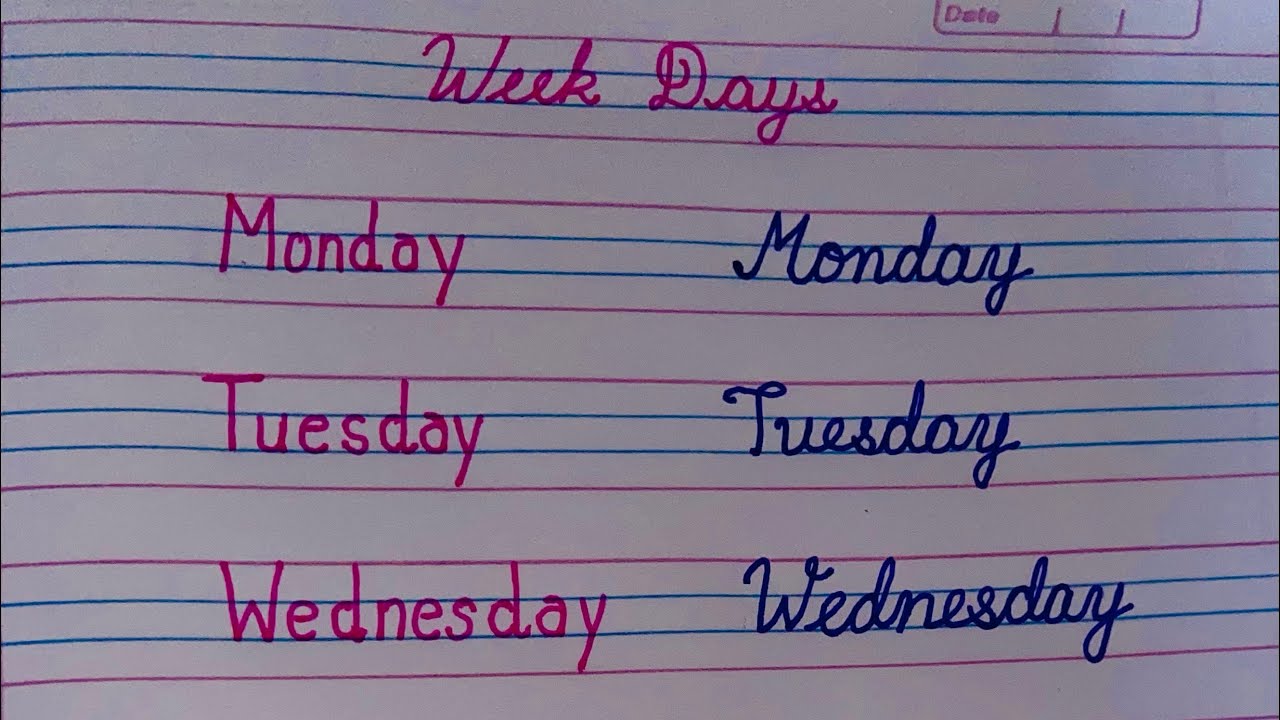 Date
Week Days
Monday Monday
Tuesday Tuesday
Wednesday Wednesday